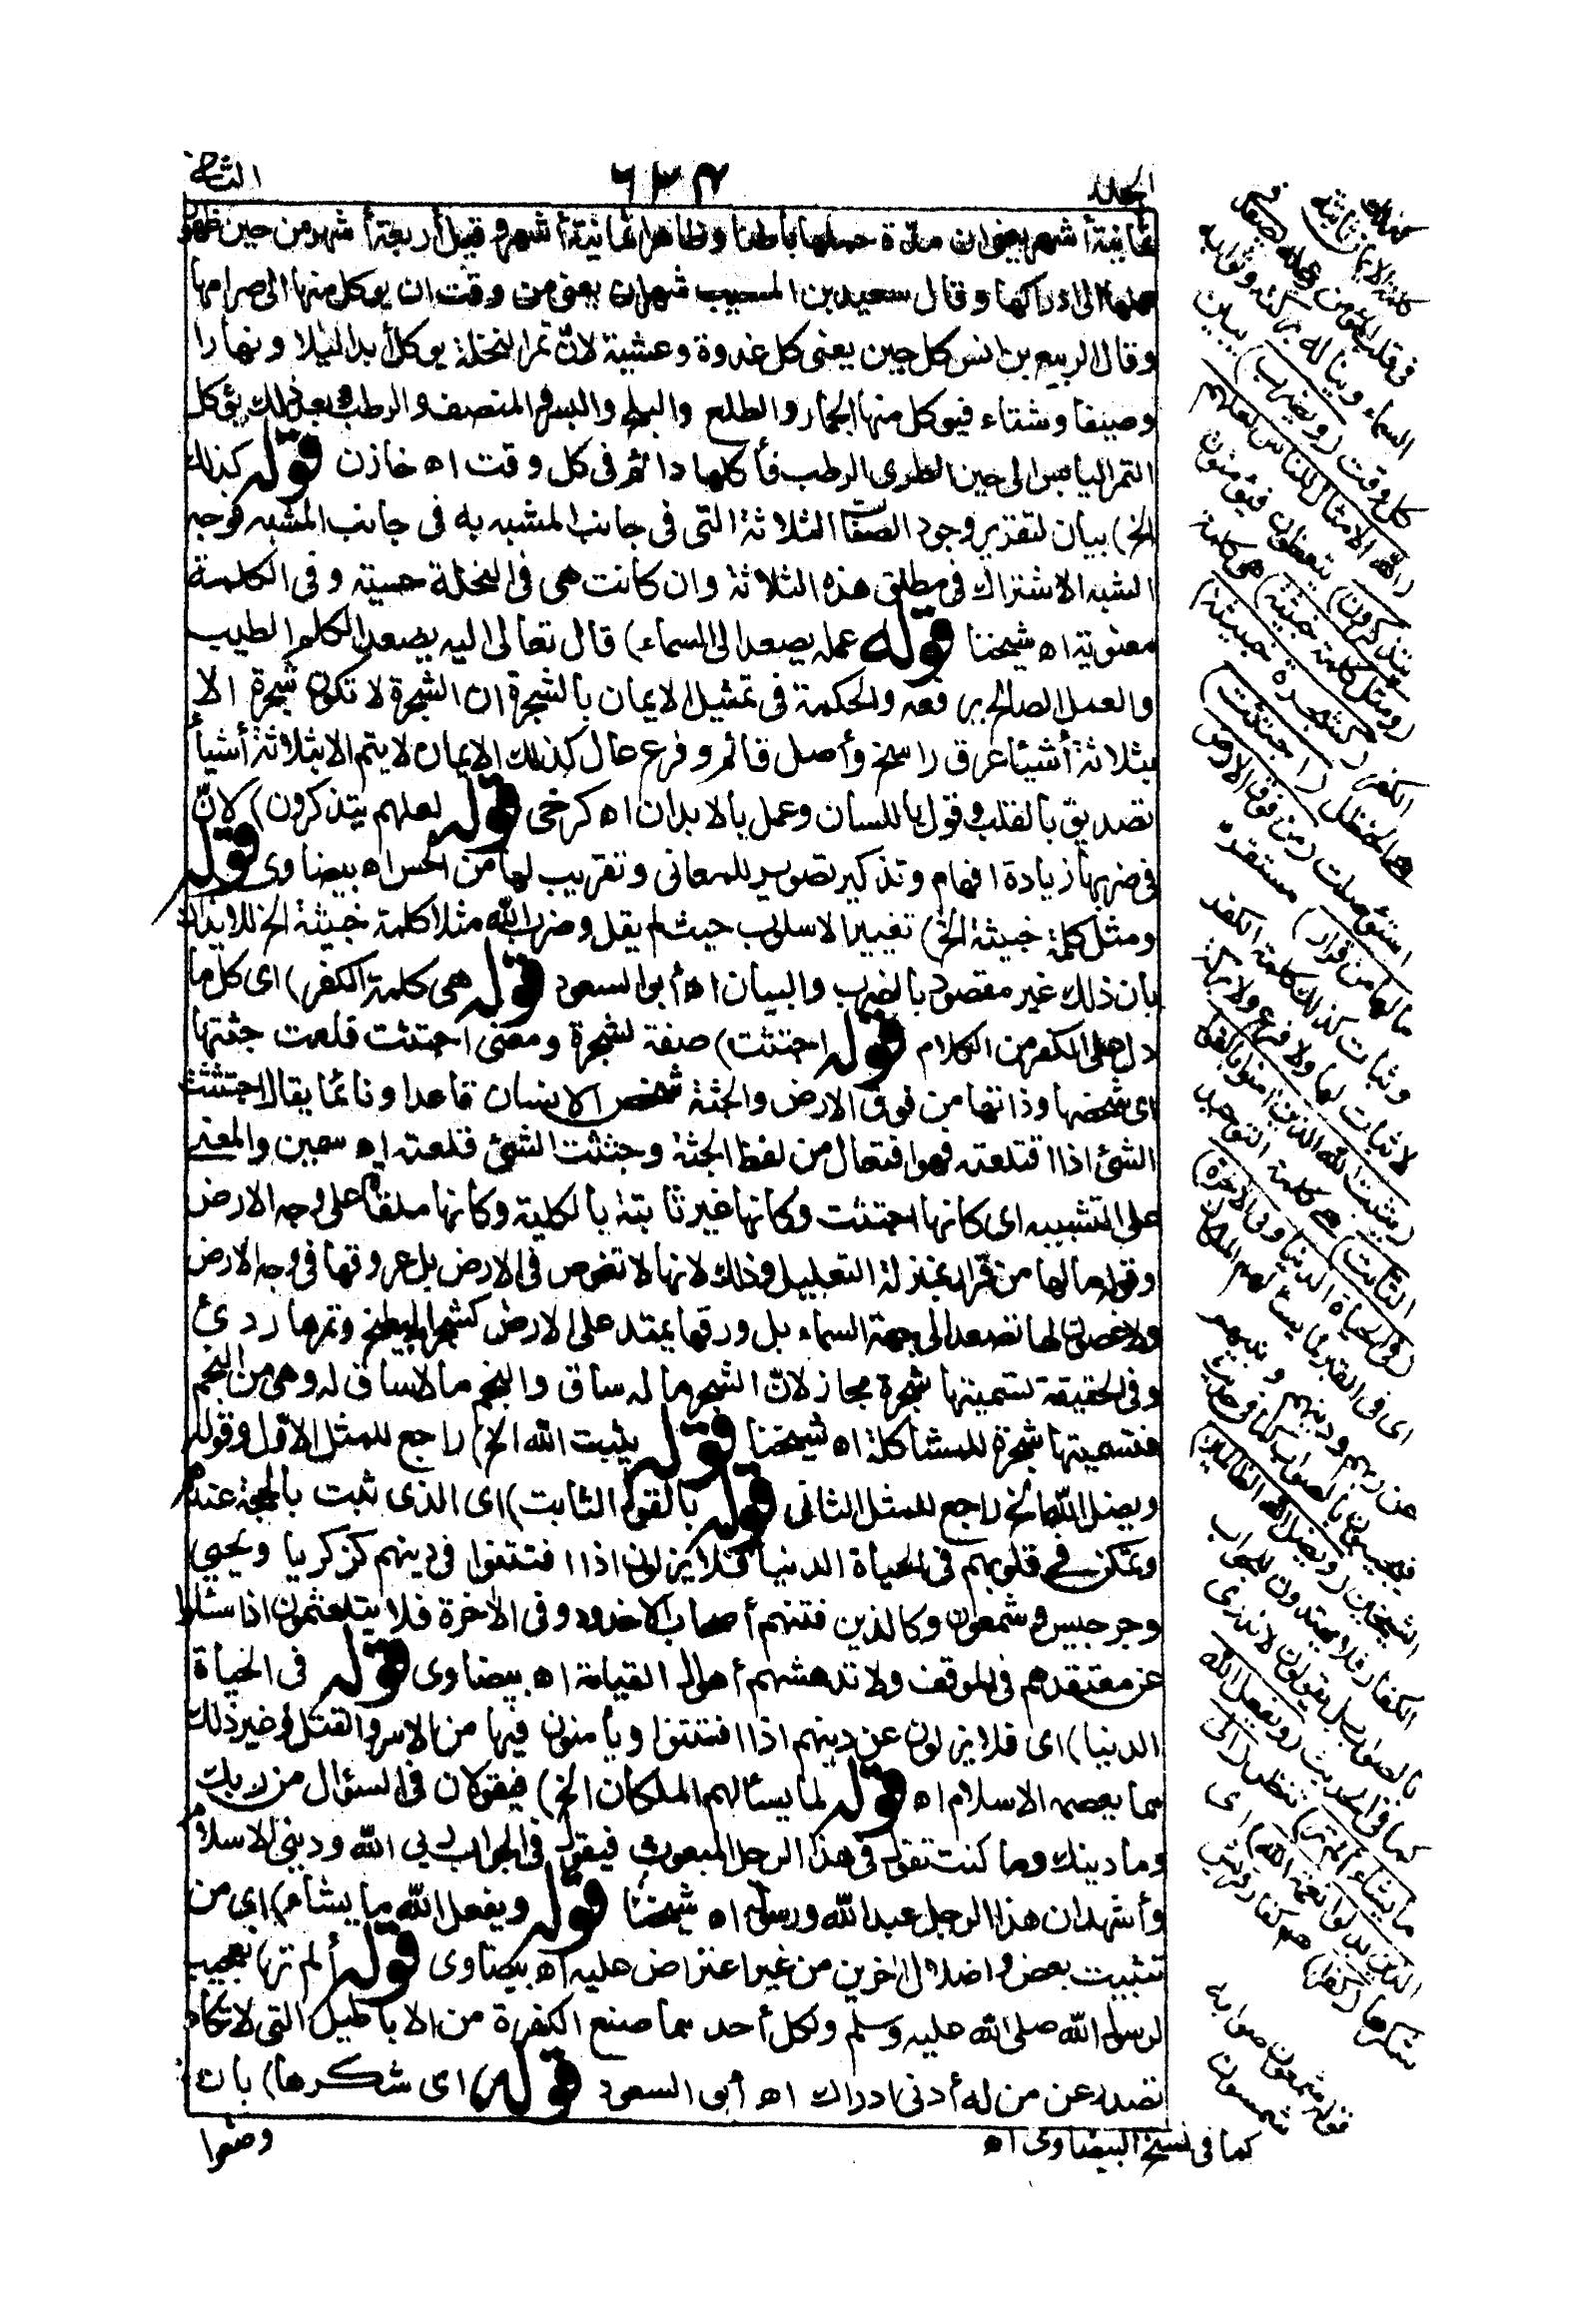 الجلد
٦٣٤
الثانى
ثمانية أشهر يعنى ان مدة حملها باطنا وظاهرا ثمانية أشهر وقيل أربعة أشهر من حين ظهور
حملها الى ادراكها وقال سعيد بن المسيب شهران يعنى من وقت ان يوكل منها الى صرامها
وقال الربيع بن انس كل حين يعنى كل غدوة وعشية لانّ ثمر النخلة يوكل أبدا ليلا ونهارا
وصيفا وشتاء فيوكل منها الجمار والطلع والبلح والبسر والمنصف والرطب وبعد ذلك يؤكل
التمر اليابس الى حين الطرى الرطب فأكلها دائم فى كل وقت اه خازن قوله كذلك
الخ) بيان لتقرير وجود الصفات الثلاثة التى فى جانب المشبه به فى جانب المشبه فوجه
الشبه الاشتراك فى مطلق هذه الثلاثة وان كانت هى فى النخلة حسية وفى الكلمة
معنوية اه شيخنا قوله عمله يصعد الى السماء) قال تعالى اليه يصعد الكلم الطيب
والعمل الصالح يرفعه والحكمة فى تمثيل الايمان بالشجرة ان الشجرة لا تكون شجرة الا
بثلاثة أشياء عرق راسخ وأصل قائم وفرع عال كذلك الايمان لا يتم الا بثلاثة أشياء
تصديق بالقلب وقول باللسان وعمل بالابدان اه كرخى قوله لعلهم يتذكرون) لانّ
فى ضربها زيادة افهام وتذكير تصوير للمعانى وتقريب لها من الحس اه بيضاوى قوله
ومثل كلمة خبيثة الخ) تغيير الاسلوب حيث لم يقل وضرب الله مثلا كلمة خبيثة الخ للايذان
بان ذلك غير مقصود بالضرب والبيان اه أبو السعود قوله هى كلمة الكفر) اى كل ما
دل على الكفر من الكلام قوله اجتثت) صفة لشجرة ومعنى اجتثت قلعت جثتها
اى شخصها وذاتها من فوق الارض والجثة شخص الانسان قاعدا ونائما يقال اجتثثت
الشئ اذا اقتلعته فهو افتعال من لفظ الجثة وجثثت الشئ قلعته اه سمين والمعنى
على التشبيه اى كانها اجتثت وكانها غير ثابتة بالكلية وكانها ملقاة على وجه الارض
وقوله مالها من قرار بمنزلة التعليل وذلك لانها لا تغوص فى الارض بل عروقها فى وجه الارض
ولا غصون لها تصعد الى جهة السماء بل ورقها يمتد على الارض كشجر البطيخ وثمرها ردئ
وفى الحقيقة تسميتها شجرة مجاز لانّ الشجر ما له ساق والنجم ما لا ساق له وهى من النجم
فتسميتها شجرة للمشاكلة اه شيخنا قوله يثبت الله الخ) راجع للمثل الاول وقوله
ويضل الله الخ راجع للمثل الثانى قوله بالقول الثابت) اى الذى ثبت بالحجة عندهم
وتمكن فى قلوبهم فى الحياة الدنيا فلا يزلون اذا افتتنوا فى دينهم كزكريا ويحيى
وجرجيس وشمعون وكالذين فتنهم أصحاب الاخدود وفى الاخرة فلا يتلعثمون اذا سئلوا
عن معتقدهم فى الموقف ولا تدهشهم أهوال القيامة اه بيضاوى قوله فى الحياة
الدنيا) اى فلا يزلون عن دينهم اذا افتتنوا ويأمنون فيها من الاسر والقتل وغير ذلك
مما يعصمه الاسلام اه قوله لما يسألهم الملكان الخ) فيقولان فى السؤال من ربك
وما دينك وما كنت تقول فى هذا الرجل المبعوث فيقول فى الجواب ربى الله ودينى الاسلام
وأشهد ان هذا الرجل عبد الله ورسوله اه شيخنا قوله ويفعل الله ما يشاء) اى من
تثبيت بعض واضلال اخرين من غير اعتراض عليه اه بيضاوى قوله ألم تر) تعجيب
لرسول الله صلى الله عليه وسلم ولكل أحد مما صنع الكفرة من الاباطيل التى لا تكاد
تصدر عن من له أدنى ادراك اه أبو السعود قوله اى شكرها) بان
وضعوا
كذلك
كلمة الايمان ثابتة
فى قلب المؤمن وعمله يصعد فى
السماء ويناله بركته وثوابه
كل وقت (ويضرب) يبين
(الله الامثال للناس لعلهم
يتذكرون) يتعظون فيؤمنون
(ومثل كلمة خبيثة) هى كلمة
الكفر (كشجرة خبيثة)
هى الحنظل (اجتثت)
استؤصلت (من فوق الارض
مالها من قرار) مستقر
وثبات كذلك كلمة الكفر
لا ثبات لها ولا فرع ولا بركة
(يثبت الله الذين امنوا بالقول
الثابت) هى كلمة التوحيد
(فى الحياة الدنيا وفى الاخرة)
اى فى القبر لما يسألهم الملكان
عن ربهم ودينهم ونبيهم
فيجيبون بالصواب كما فى حديث
الشيخين (ويضل الله الظالمين)
الكفار فلا يهتدون للجواب
بالصواب بل يقولون لا ندرى
كما فى الحديث (ويفعل الله
ما يشاء ألم تر) تنظر (الى
الذين بدلوا نعمة الله) اى
شكرها (كفرا) هم كفار قريش
قوله شمعون صوابه
شمسون
كما فى نسخ البيضاوى اه